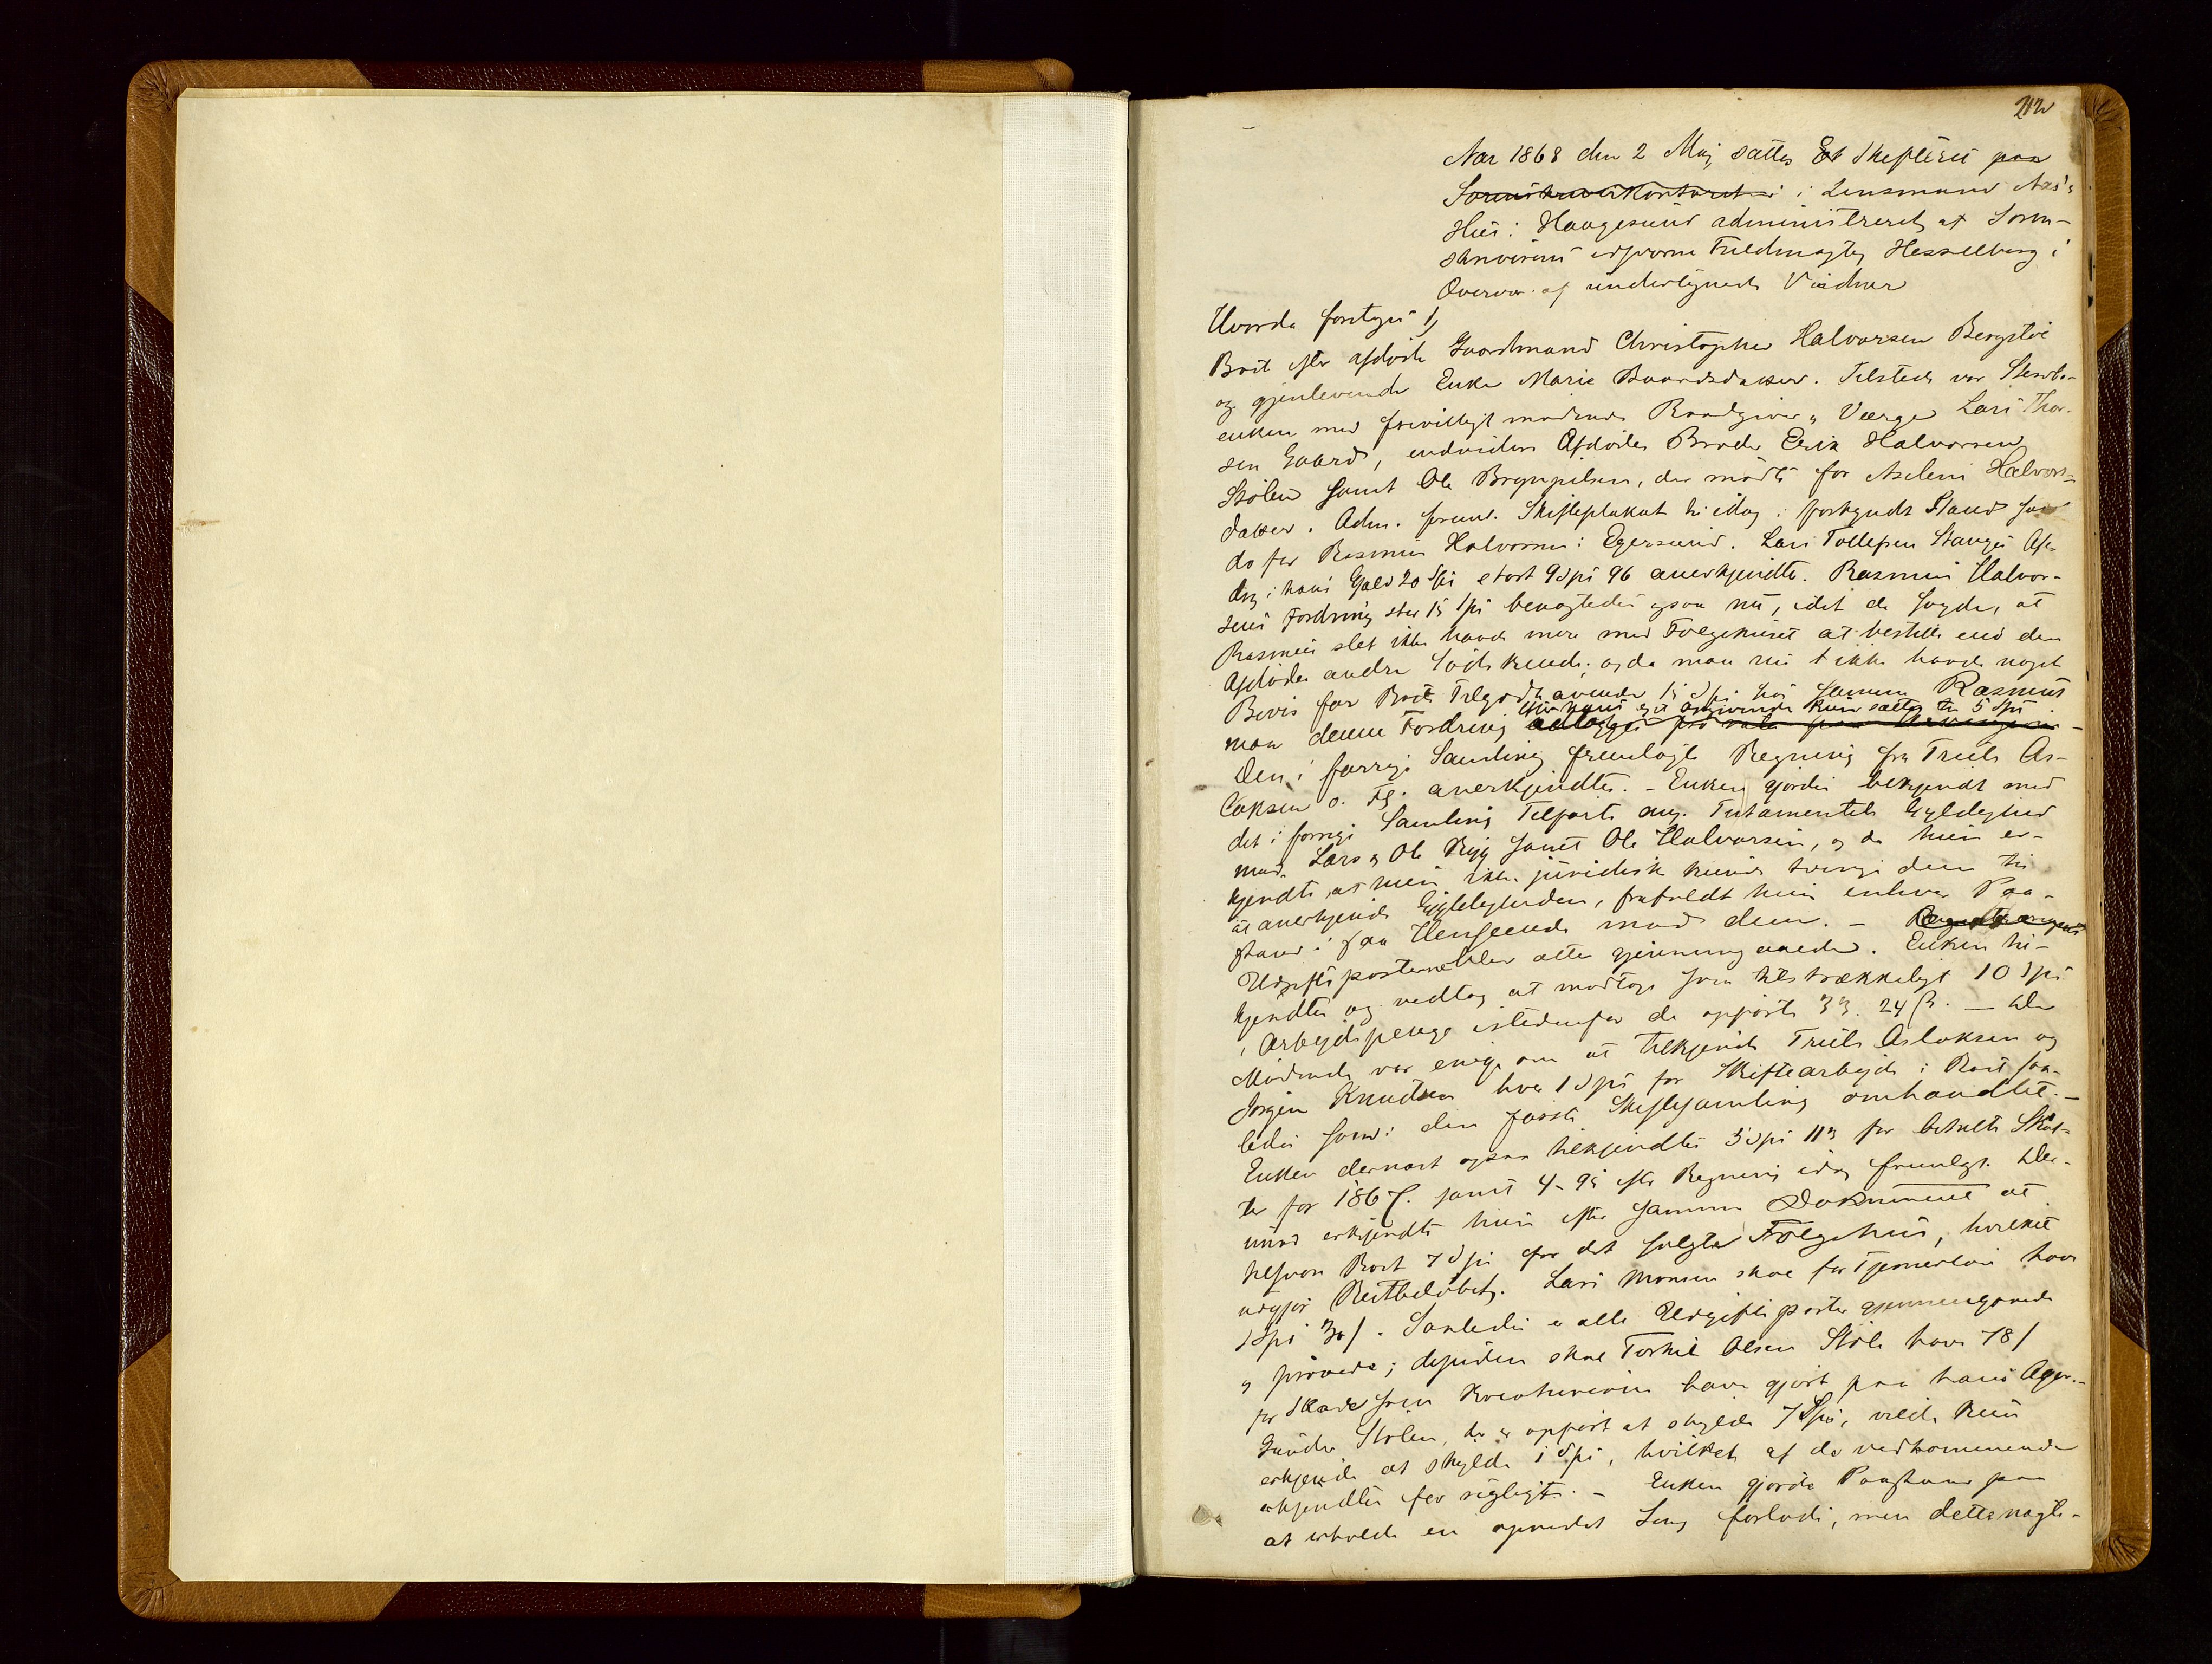 212
Aar 1868 den 2 Maj sattes Et Skifteret paa
Sorenskriverkontoret i i Lensmand Aas's
Huus i Haugesund administreret af Soren-
skriverens edsvorne Fuldmægtig Hesselberg i
Overvær af undertegnede Vidner
Hvorda foretoges 1,
Boet efter afdøde Gaardmand Christopher Halvorsen Bergstøl
og gjenlevende Enke Marie Baardsdatter. Tilstede var Stervbo-
enken med frivilligt mødende Raadgiver og Værge Lars Thor-
sen Gaard, endvidere Afdødes Broder Erik Halvorsen
Stølen samt Ole Bryngelsen, der mødte for Halvors-
datter. Adm. freml. Skifteplakat til idag i forkyndt Stand som
do for Rasmus Halvorsen i Egersund. Lars Tollefsen Stanges
i hans Gjæld 20 Spd stort 9 Spd 96 anerkjendtes. Rasmus Halvor-
sens Fordring stor 15 Spd benægtedes ogsaa nu, idet de sagde, at
Rasmus slet ikke havde mere med Følgehuset at bestille end den
Afdødes andre Sødskende; og da man nu ikke havde noget
Bevis for Boets Tilgodehavende 15 Spd hos samme Rasmus
maa denne Fordring efter hans eget Opgivende kun sættes til 5 Spd
Den i forrige Samling fremlagte Regning fra Truls As-
laksen o. Fl. anerkjendtes. - Enken gjordes bekjendt med
det i forrige Samling Tilførte ang. Testamentets Gyldighed
mod Lars og Ole samt Ole Halvorsen, og da hun er-
kjendte, at hun ikke juridisk kunde tvinge dem til
at anerkjende Gyldigheden, frafaldt hun enhver Paa-
stand i saa Henseende mod dem. -
Udgiftsposterne blev atter gjennemgaaede. Enken til-
kjendtes og vedtog at modtage som tilstrækkeligt 10 Spd
i Arbejdspenge istedenfor de opførte 33. 24 ß. - De
Mødende var enige om at tilkjende Truls Aslaksen og
Jørgen Knudsen hver 1 Spd for Skiftearbejde i Boet saa-
ledes som i den første Skiftesamling omhandlet. -
Enken dernæst ogsaa tilkjendtes 3 Spd 113 for betalte Skat-
ter for 1867. samt 4-95 efter Regning idag fremlagt. Der-
imod erkjendte hun efter samme Dokument at
tilsvare Boet 7 Spd for det solgte Følgehus, hvilket
udgjør Restbeløbet. Lars Monsen skal for Tjenerløn have
1 Spd 30 ß. Saaledes er alle Udgiftsposter gjennemgaaede
og prøvede; desuden skal Torkil Olsen Støle have 78 ß
for Skade som Kreaturerne have gjort paa hans Ager. -
Gunder Stølen, der er opført at skylde 7 Spd, vilde kun
erkjende at skylde 1 Spd, hvilket af de vedkommende
erkjendtes for rigtigt. - Enken gjorde Paastand paa
at erholde en opredet Seng forlods, men dette nægte-